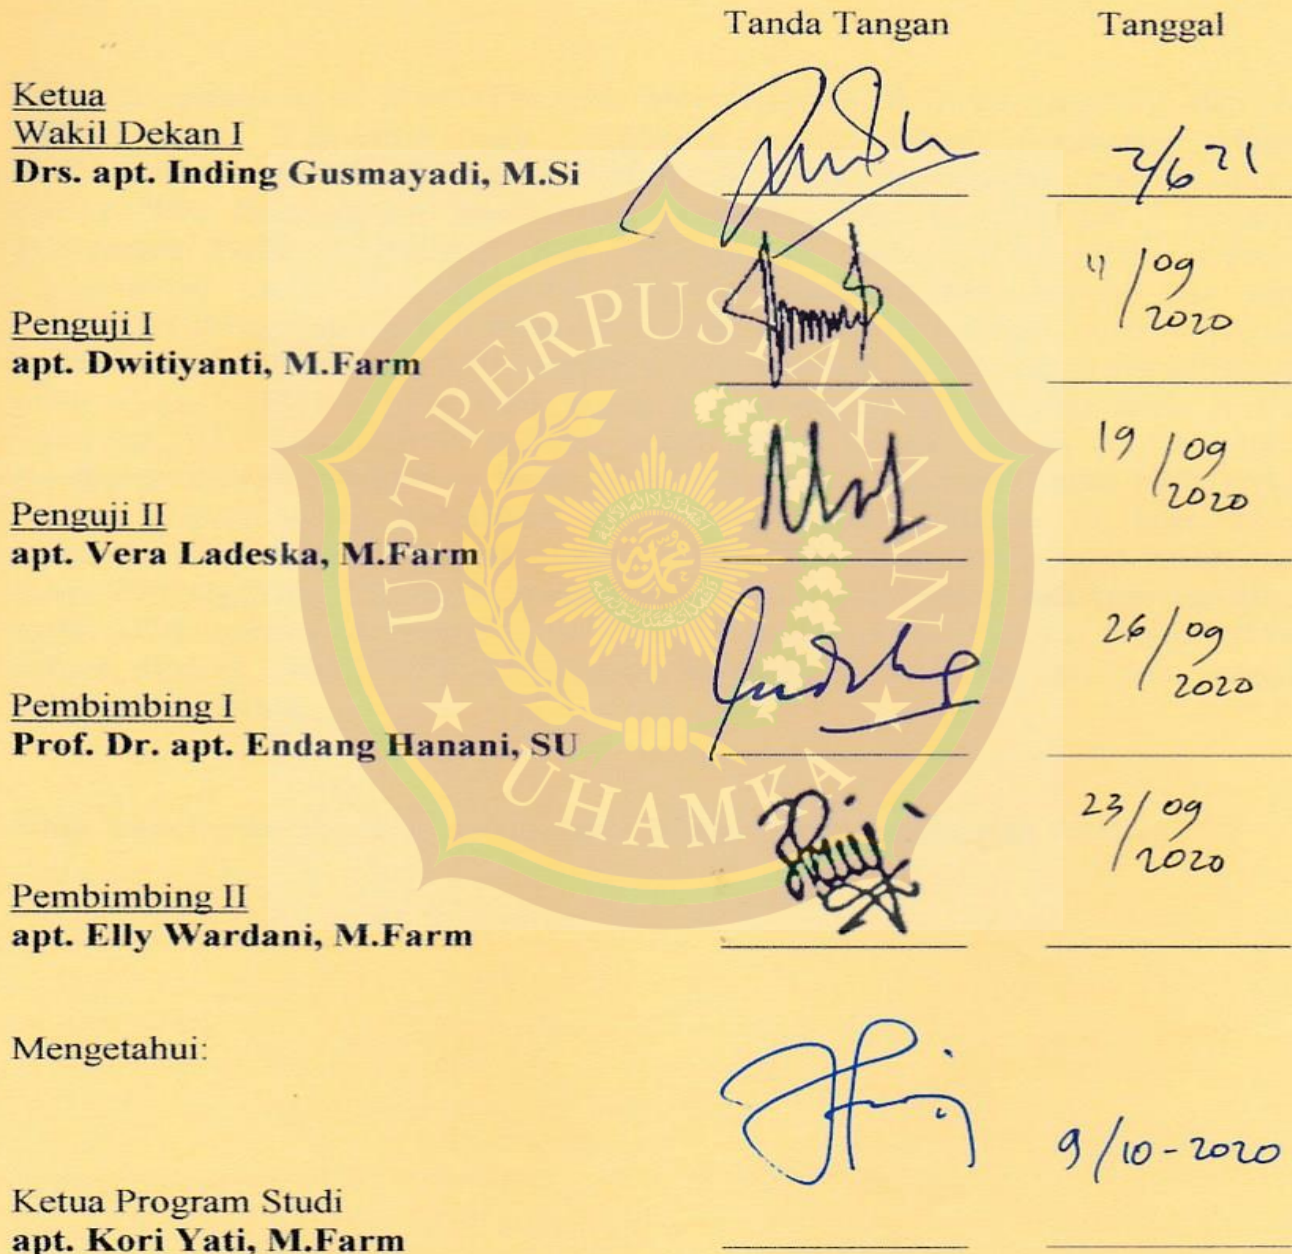 Tanda Tangan Tanggal
Ketua
Wakil Dekan I
Drs. apt. Inding Gusmayadi, M.Si 2/6 21
11/09
2020
Penguji I
apt. Dwitiyanti, M.Farm
19/09
2020
Penguji II
apt. Vera Ladeska, M.Farm
26/09
2020
Pembimbing I
Prof. Dr. apt. Endang Hanani, SU
23/09
2020
Pembimbing II
apt. Elly Wardani, M.Farm
Mengetahui:
9/10-2020
Ketua Program Studi
apt. Kori Yati, M.Farm
UPT PERPUSTAKAAN
UHAMKA